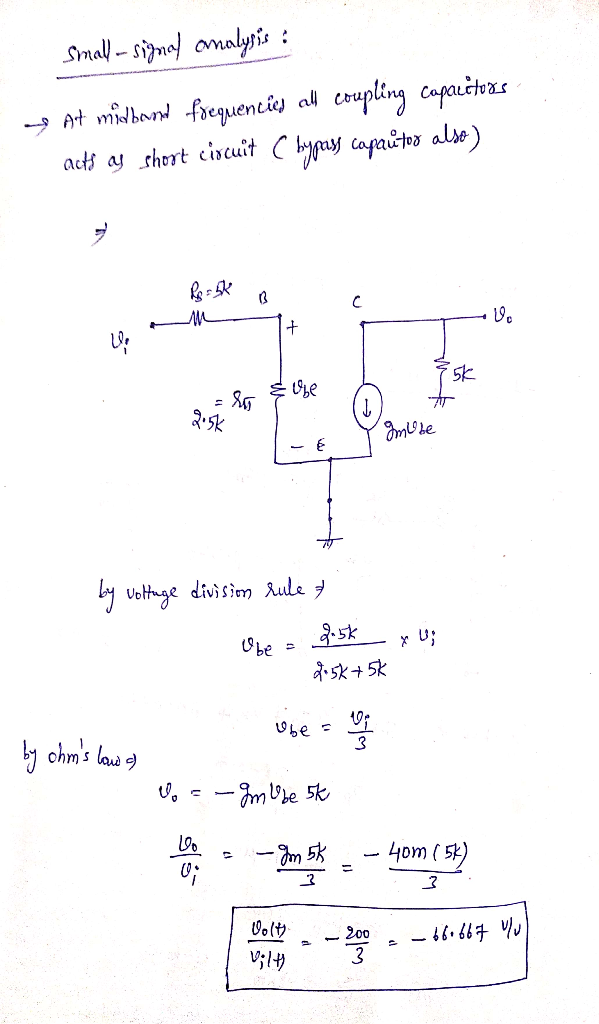 Small-signal analysis :
→ At midband frequencies all coupling capacitors
acts as short circuit ( bypass capacitor also)
⇒
Rs = 5k B C
Vi + Vo
= rπ Vbe 5k
2.5k gmVbe
- E
by voltage division rule ⇒
Vbe = 2.5k / 2.5k + 5k × Vi
Vbe = Vi / 3
by ohm's law ⇒
Vo = - gm Vbe 5k
Vo / Vi = - gm 5k / 3 = - 40m (5k) / 3
Vo(t) / Vi(t) = - 200 / 3 = - 66.667 V/V